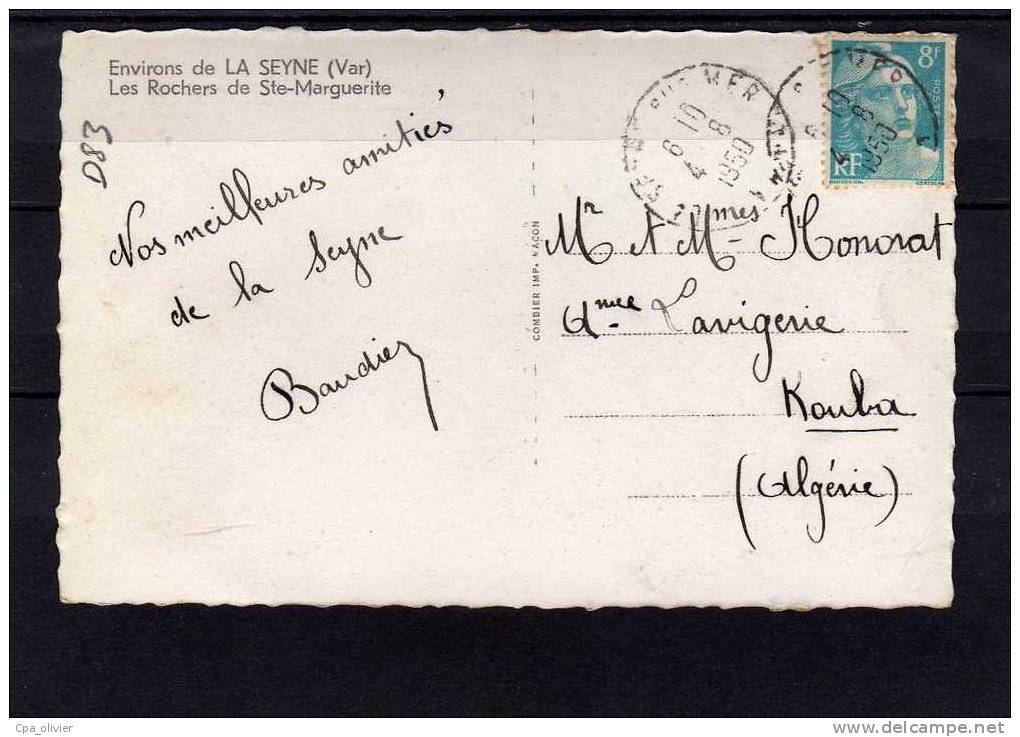 Environs de LA SEYNE (Var)
Les Rochers de Ste-Marguerite
D83
Nos meilleures amitiés
de la Seyne
Baudier
COMBIER IMP. MACON
SUR MER
6 10
4 8
1950
8F
POSTES
RF
Mr et Mmes Honorat
Lavigerie
Kouba
(Algérie)
Cpa_olivier
www.delcampe.net